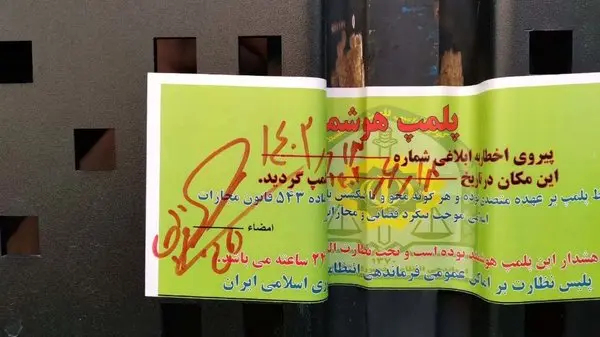 پلمپ هوشم
پیروی اخطاریه ابلاغی شماره ۱۴۰۲
این مکان در تاریخ پلمپ گردید.
پلمپ بر عهده متصدی بوده و هر گونه محو و یا شکستن ماده ۵۴۳ قانون مجازات
اسلامی موجب پیگرد قضائی و مجازات
امضاء
هشدار این پلمپ هوشمند بوده است و تحت نظارت ۲۴ ساعته می باشد.
پلیس نظارت بر اماکن عمومی فرماندهی انتظامی اسلامی ایران